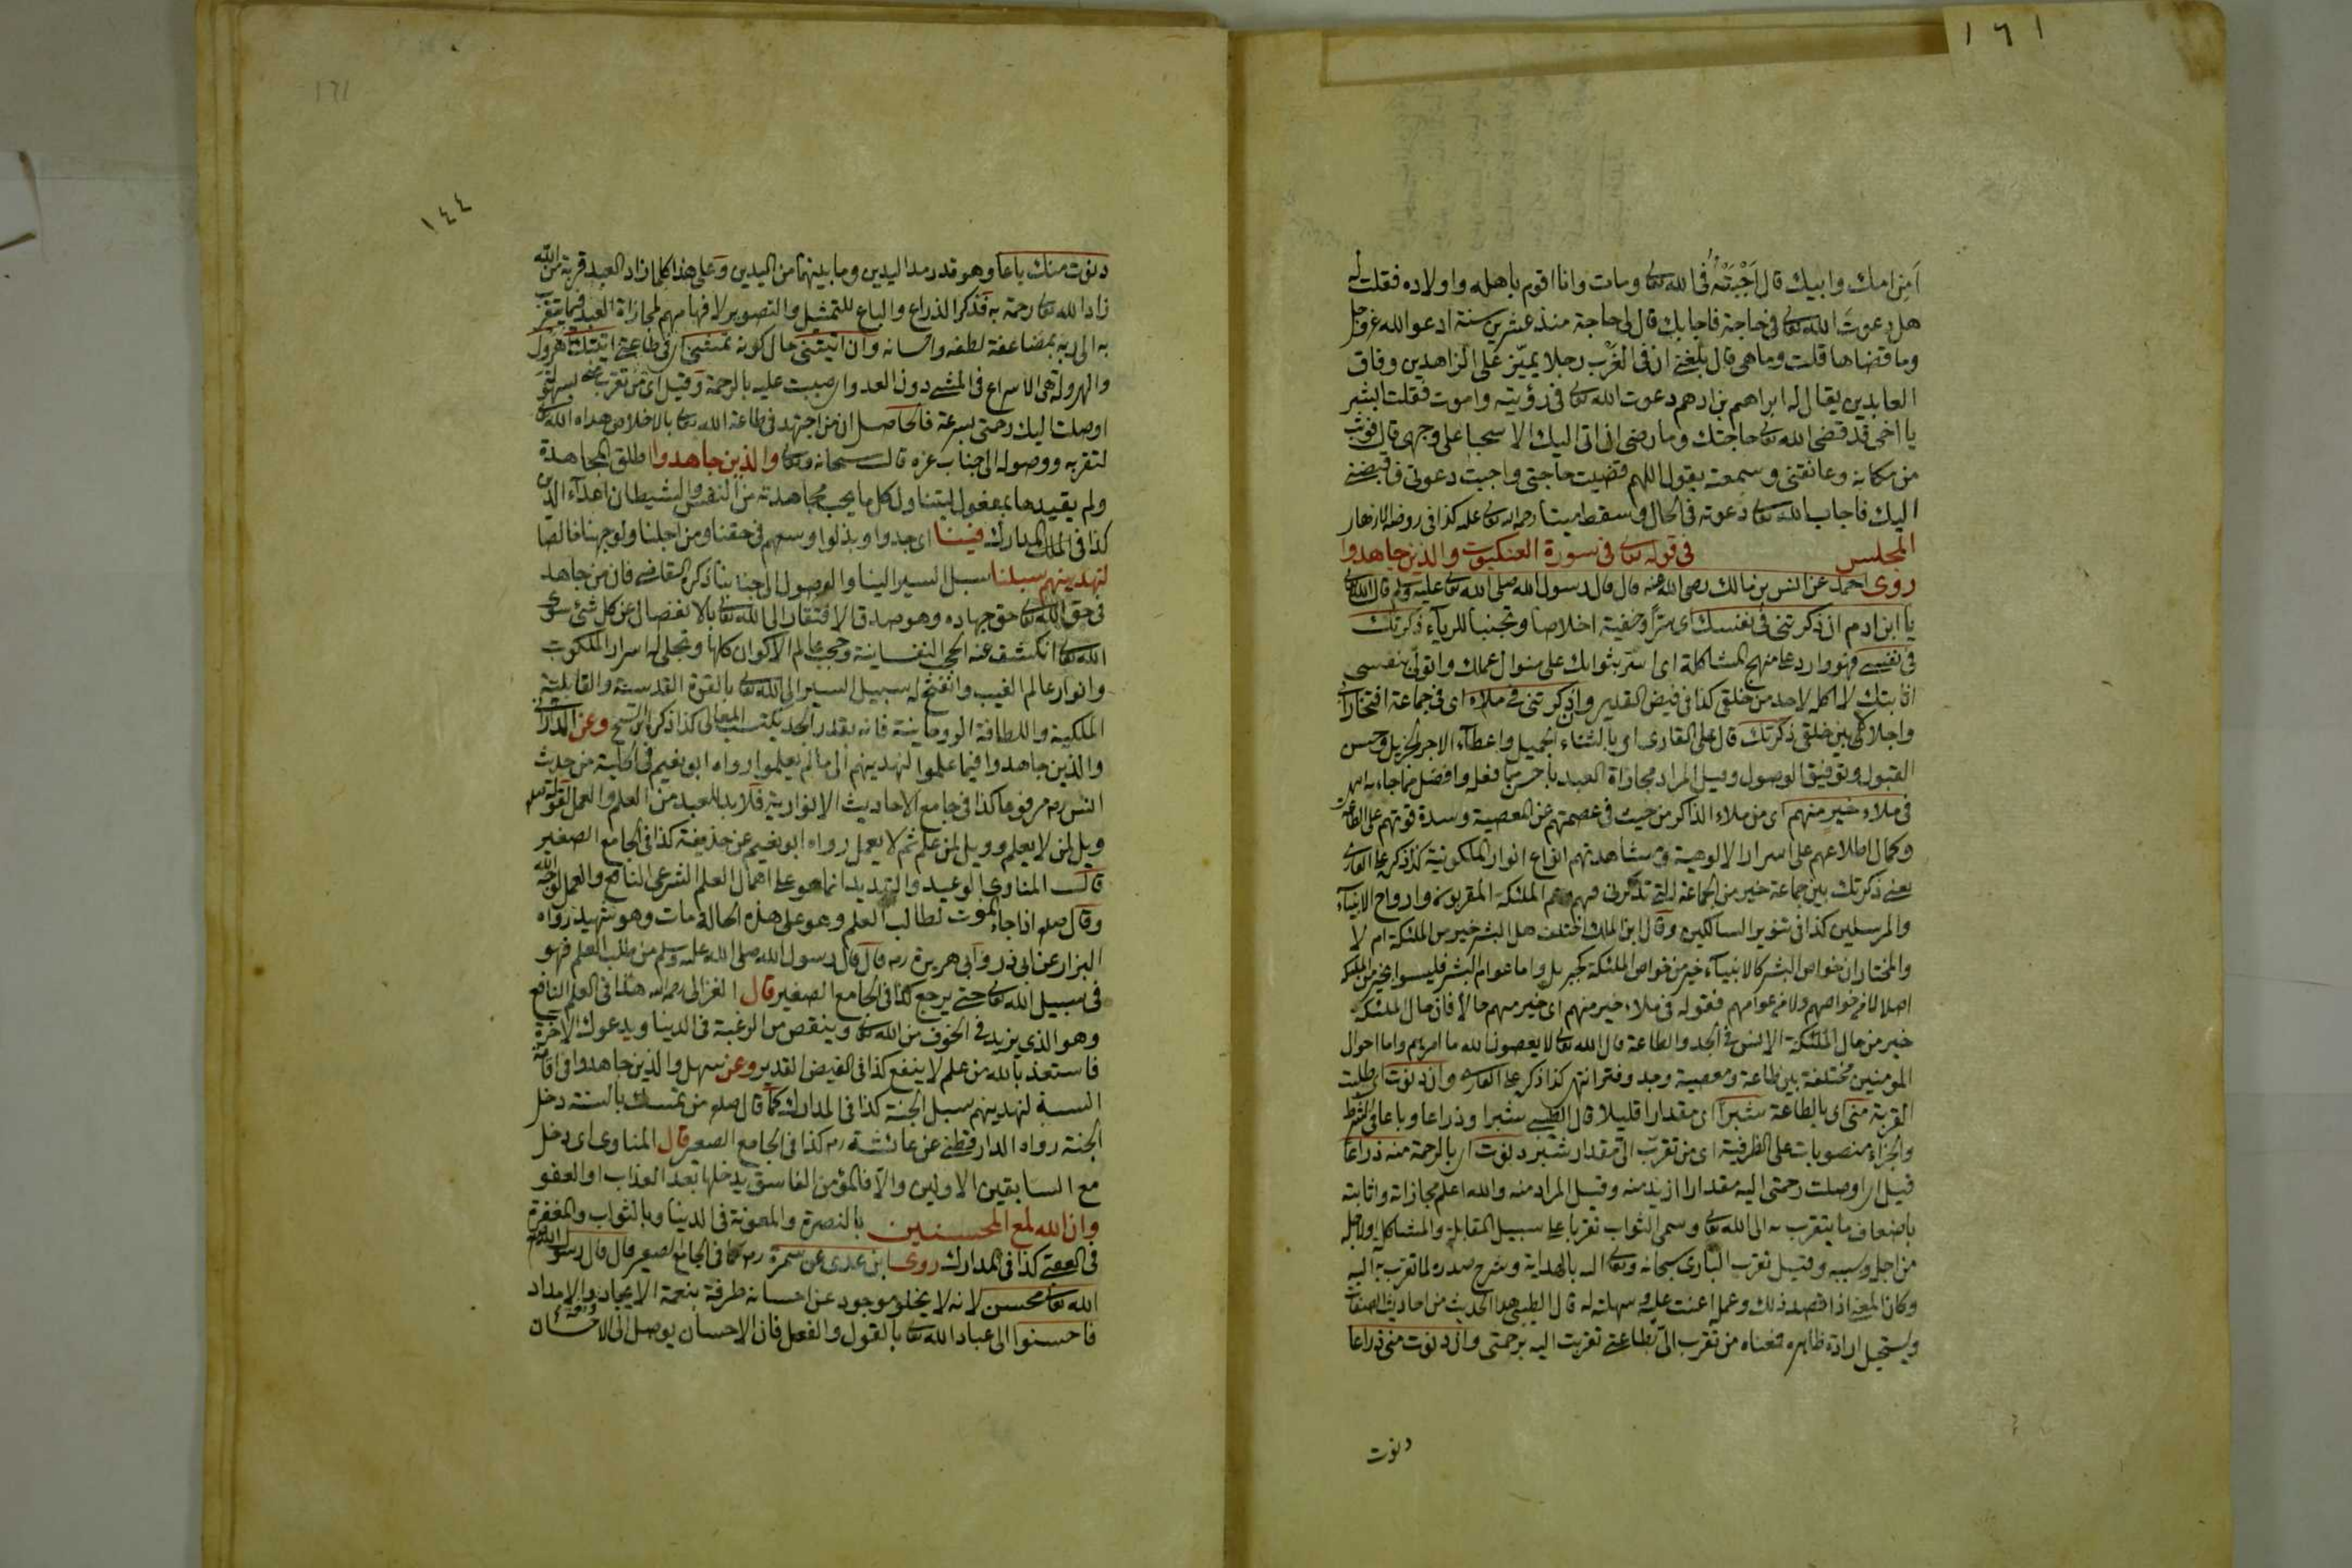 ١٦١
أمن امك وابيك قال اجبته في الله تعالى ومات وانا اقوم باهله واولاده فقلت له
هل دعوت الله تعالى في حاجة فاجابك قال لى حاجة منذ عشرين سنة ادعو الله عز وجل
وما قضاها قلت وما هى قال بلغنى ان في الغرب رجلا يميز على الزاهدين وفاق
العابدين يقال له ابراهيم بن ادهم دعوت الله تعالى في رؤيته واموت فقلت ابشر
يا اخى قد قضى الله تعالى حاجتك وما رضى ان اتى اليك الا سحبا على وجهى قال فوثب
من مكانه وعانقنى وسمعته يقول اللهم قضيت حاجتى واجبت دعوتى فاقبضنى
اليك فاجاب الله تعالى دعوته في الحال وسقط ميتا رحمه الله تعالى عليه كذا في روضة الازهار
المجلس في قوله تعالى في سورة العنكبوت والذين جاهدوا
روى احمد عن انس بن مالك رضى الله عنه قال قال رسول الله صلى الله تعالى عليه وسلم قال الله تعالى
يا ابن ادم ان ذكرتنى في نفسك اى سرا وخفية اخلاصا وتجنبا للرياء ذكرتك
في نفسى فهو وارد على منهج المشاكلة اى اسر بثوابك على منوال عملك واتولى بنفسى
اثابتك لا اكله لاحد من خلقى كذا في فيض القدير وان ذكرتنى في ملاء اى في جماعة افتخارا بى
واجلالا لى بين خلقى ذكرتك قال على القارى اى بالثناء الجميل واعطاء الاجر الجزيل وحسن
القبول وتوفيق الوصول وقيل المراد مجازاة العبد باحسن مما فعله وافضل مما جاء به
في ملاء خير منهم اى من ملاء الذاكر من حيث في عصمتهم عن المعصية وشدة قوتهم على الطاعة
وكمال اطلاعهم على اسرار الالوهية ومشاهدتهم انواع انوار الملكوتية كذا ذكره على القارى
يعنى ذكرتك بين جماعة خير من الجماعة التى تذكرنى فيهم وهم الملئكة المقربون وارواح الانبياء
والمرسلين كذا في تنوير السالكين وقال ابن الملك اختلف هل البشر خير من الملئكة ام لا
والمختار ان خواص البشر كالانبياء خير من خواص الملئكة كجبريل واما عوام البشر فليسوا بخير من الملئكة
اصلا لا من خواصهم ولا من عوامهم فقوله في ملاء خير منهم اى خير منهم حالا فان حال الملئكة
خير من حال الملئكة الانس في الجد والطاعة قال الله تعالى لا يعصون الله ما امرهم واما احوال
المؤمنين مختلفة بين طاعة ومعصية وجد وفتر انتهى كذا ذكره على القارى وان دنوت اى طلبت
القربة منى اى بالطاعة شبرا اى مقدارا قليلا قال الطيبى شبرا وذراعا وباعا في الشرط
والجزاء منصوبات على الظرفية اى من تقرب الى مقدار شبر دنوت اى بالرحمة منه ذراعا
قيل اى اوصلت رحمتى اليه مقدارا ازيد منه وقيل المراد منه والله اعلم مجازاته واثابته
باضعاف ما يتقرب به الى الله تعالى وسمى الثواب تقربا على سبيل المقابلة والمشاكلة ولاجله
من اجل وسببه وقيل تقرب البارى سبحانه وتعالى اليه بالهداية وشرح صدره لما تقرب به اليه
وكان المعنى اذا قصد ذلك وعمله اعنت عليه وسهلته له قال الطيبى هذا الحديث من احاديث الصفات
ويستحيل ارادة ظاهره فمعناه من تقرب الى بطاعتى تقربت اليه برحمتى وان دنوت منى ذراعا
دنوت
١٦١
١٤٤
دنوت منك باعا وهو قدر مد اليدين وما بينهما من اليدين وعلى هذا كلما زاد العبد قربة من الله
زاد الله تعالى رحمة به فذكر الذراع والباع للتمثيل والتصوير لافهامهم لمجازاة العبد فيما يتقرب
به الى ربه بمضاعفة لطفه واحسانه وان اتيتنى حال كونه تمشى اى في طاعتى اتيتك اهرول
والهرولة هى الاسراع في المشى دون العدو اى صببت عليه بالرحمة وقيل اى من تقرب منى بسهولة
اوصلت اليك رحمتى بسرعة فالحاصل ان من اجتهد في طاعة الله تعالى بالاخلاص هداه الله تعالى
لتقربه ووصوله الى جناب عزه قال سبحانه وتعالى والذين جاهدوا اطلق المجاهدة
ولم يقيدها بمفعول ليتناول كل ما يجب مجاهدته من النفس والشيطان اعداء الدين
كذا في المدارك فينا اى جدوا وبذلوا وسعهم في حقنا ومن اجلنا ولوجهنا خالصا
لنهدينهم سبلنا سبل السير الينا والوصول الى جنابنا ذكره القاضى فان من جاهد
في حق الله تعالى حق جهاده وهو صدق الافتقار الى الله تعالى بالانفصال عن كل شئ سوى
الله تعالى انكشف عنه الحجب النفسانية وحجب عالم الاكوان كلها وتجلى له اسرار الملكوت
وانوار عالم الغيب وانفتح له سبيل السير الى الله تعالى بالقوة القدسية والقابلية
الملكية واللطافة الروحانية فانه بقدر الجد يكتسب المعالى كذا ذكره ابن الشيخ وعن الدارانى
والذين جاهدوا فيما علموا لنهدينهم الى ما لم يعلموا رواه ابو نعيم في الحلية من حديث
انس رضه مرفوعا كذا في جامع الاحاديث الانوارية فلا بد للعبد من العلم والعمل لقوله صلعم
ويل لمن لا يعلم وويل لمن علم ثم لا يعمل رواه ابو نعيم عن حذيفة كذا في الجامع الصغير
قال المناوى الوعيد والتهديد انما هو على اهمال العلم الشرعى النافع والعمل لوجه الله
وقال صلعم اذا جاء الموت لطالب العلم وهو على هذه الحالة مات وهو شهيد رواه
البزار عن ابى ذر وابى هريرة رضه قال قال رسول الله صلى الله عليه وسلم من طلب العلم فهو
في سبيل الله تعالى حتى يرجع كذا في الجامع الصغير قال الغزالى رحمه الله هذا في العلم النافع
وهو الذى يزيد في الخوف من الله تعالى وينقص من الرغبة في الدنيا ويدعوك الى الاخرة
فاستعذ بالله من علم لا ينفع كذا في الفيض القدير وعن سهل والذين جاهدوا في اقامة
السنة لنهدينهم سبل الجنة كذا في المدارك كما قال صلعم من تمسك بالسنة دخل
الجنة رواه الدارقطنى عن عائشة رضه كذا في الجامع الصغير قال المناوى اى دخل
مع السابقين الاولين والا فالمؤمن الفاسق يدخلها بعد العذاب او العفو
وان الله لمع المحسنين بالنصرة والمعونة في الدنيا وبالثواب والمغفرة
في العقبى كذا في المدارك روى ابن عدى عن سمرة رضه كما في الجامع الصغير قال قال رسول الله صلعم
الله تعالى محسن لانه لا يخلو موجود عن احسانه طرفة بنعمة الايجاد والامداد
فاحسنوا الى عباد الله تعالى بالقول والفعل فان الاحسان يوصل الى الاحسان